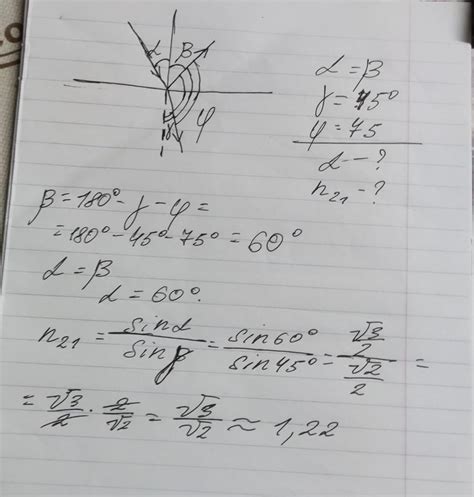 α β
γ φ
α = β
γ = 45°
φ = 75
α — ?
n₂₁ - ?
β = 180° - γ - φ =
= 180° - 45° - 75° = 60°
α = β
α = 60°.
n₂₁ = sinα/sinγ = sin60°/sin45° = (√3/2)/(√2/2) =
= √3/2 · 2/√2 = √3/√2 ≈ 1,22